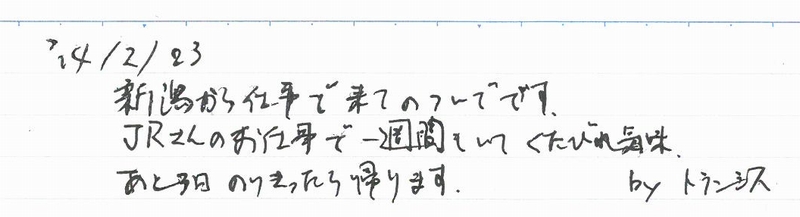 '14/2/23
新潟から仕事で来てのついでです.
JRさんのお仕事で一週間もいてくたびれ気味.
あと3日のりきったら帰ります. by トランシス